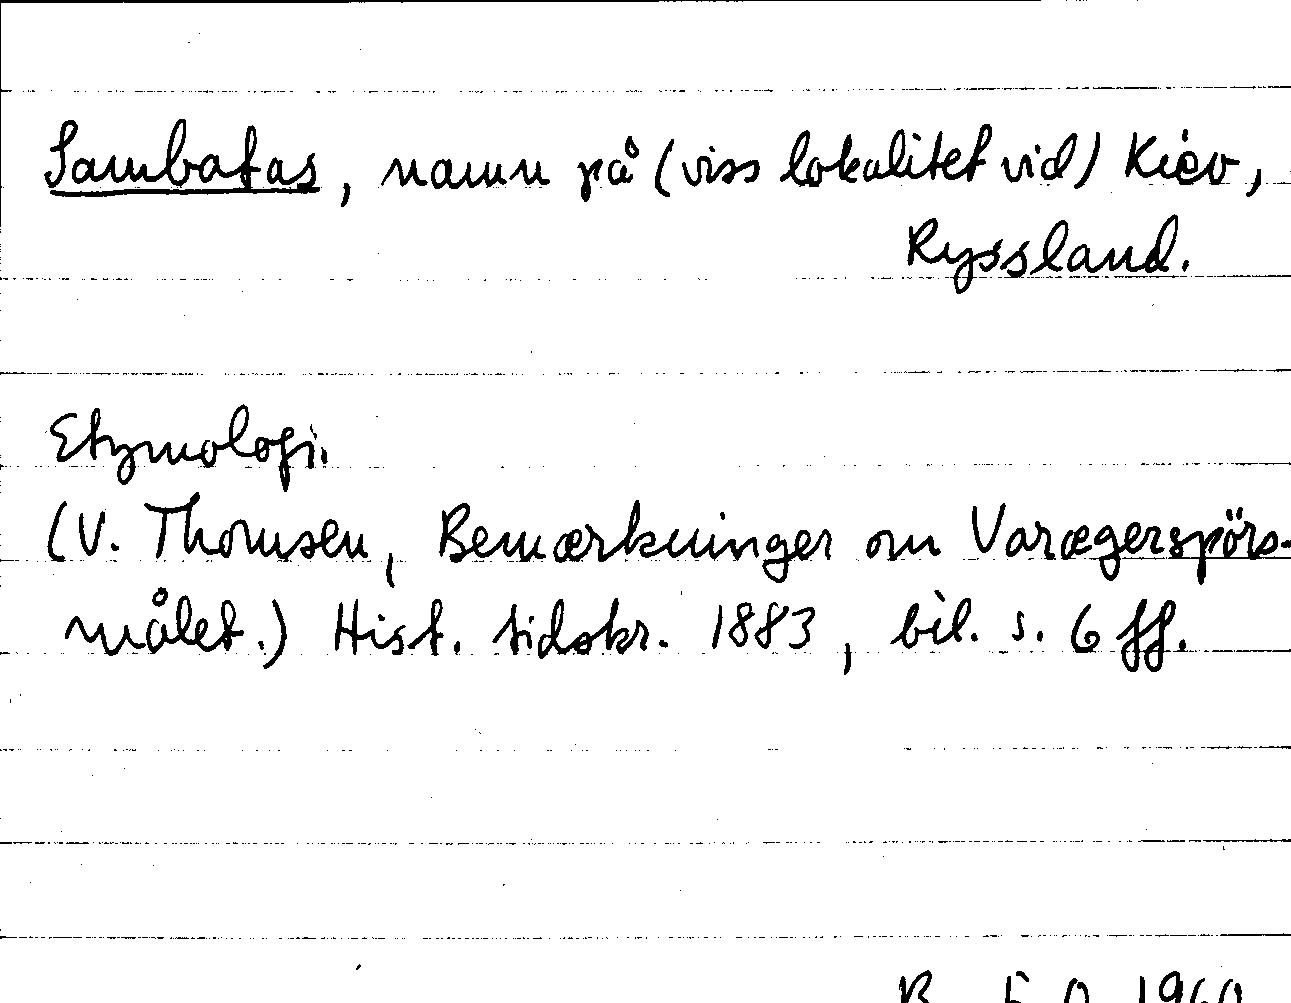 Sambatas, namn på (viss lokalitet vid) Kiev,
Ryssland.
Etymologi.
(V. Thomsen, Bemærkninger om Varægerspörs-
målet.) Hist. tidskr. 1883, bil. s. 6 ff.